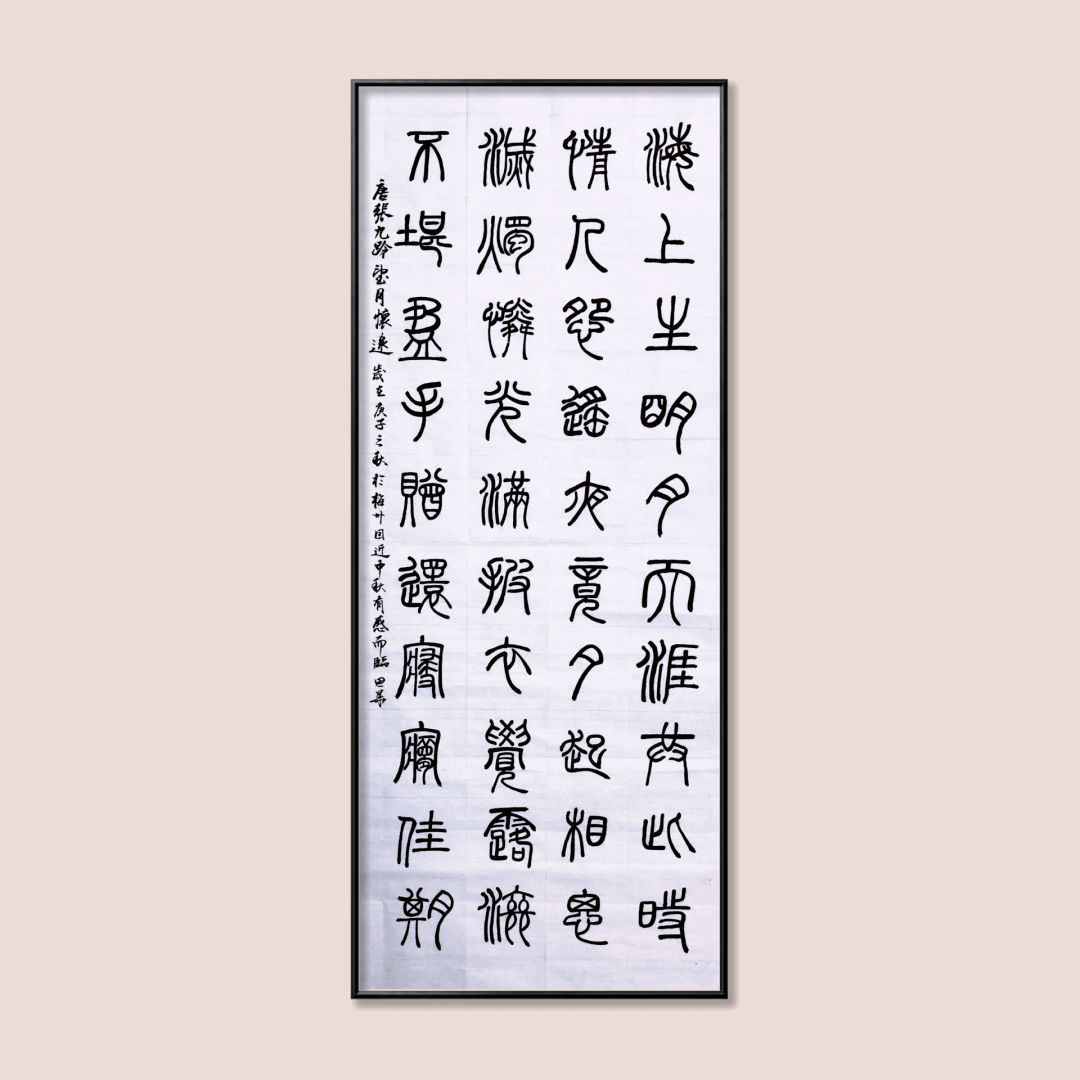 海上生明月天涯共此時
情人怨遙夜竟夕起相思
滅燭憐光滿披衣覺露滋
不堪盈手贈還寢夢佳期
唐張九齡望月懷遠 歲在庚子之秋於梅因近中秋有感而臨